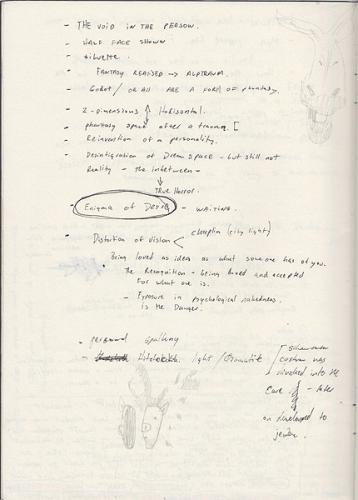 - THE VOID IN THE PERSON.
- HALF FACE SHOWN
-
- FANTASY REALISED →
- / OR ALL ARE A FORM OF phantasy.
- 2-dimensions Horisontal.
- phantasy space after a trauma. [
- Reinvention of a personality.
- Desintigration of Dream SPACE - but still not
Reality - the inbetween -
TRUE HORROR.
- Enigma of Desire - WAITING.
Distortion of vision < (city light)
- Being loved as ideas as what someone has of you.
The Recognition - being loved and accepted
For what one is.
- Exposure in psychological nakedness.
Is the Danger.
- personal
- light / Dramatik
costum was
involved into the
Core - later
on developed to